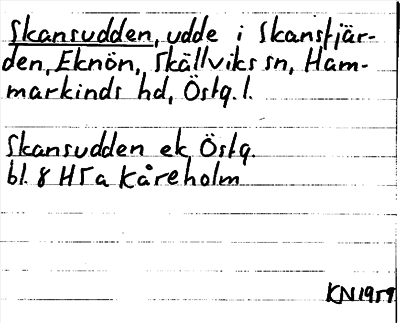 Skansudden, udde i Skansfjär-
den, Eknön, Skällviks sn, Ham-
markinds hd, Östg. l.
Skansudden ek, Östg.
bl. 8 H5a Kåreholm
KN 1959